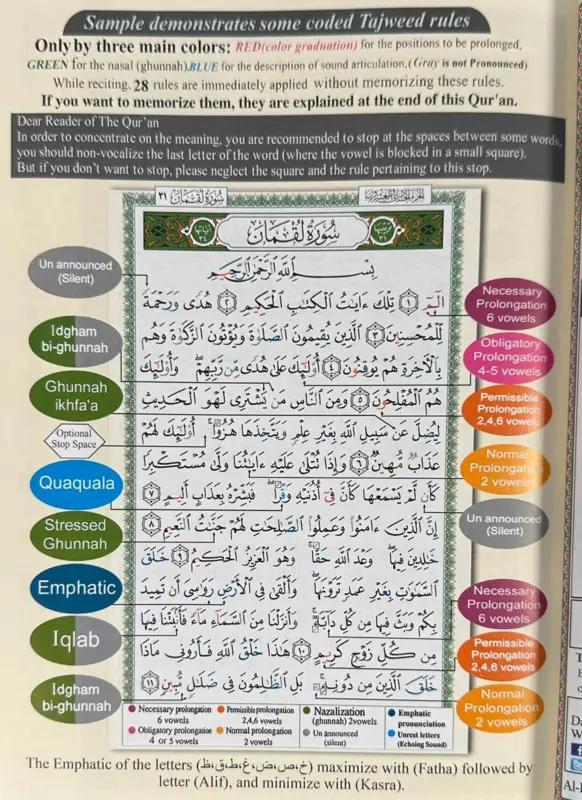 Sample demonstrates some coded Tajweed rules
Only by three main colors: RED(color graduation) for the positions to be prolonged,
GREEN for the nasal (ghunnah).BLUE for the description of sound articulation,(Gray is not Pronounced)
While reciting, 28 rules are immediately applied without memorizing these rules.
If you want to memorize them, they are explained at the end of this Qur'an.
Dear Reader of The Qur'an
In order to concentrate on the meaning, you are recommended to stop at the spaces between some words,
you should non-vocalize the last letter of the word (where the vowel is blocked in a small square).
But if you don't want to stop, please neglect the square and the rule pertaining to this stop.
سُورَةُ لُقْمَان ٣١
سُورَةُ لُقْمَان
بِسْمِ اللَّهِ الرَّحْمَٰنِ الرَّحِيمِ
الٓمٓ ١ تِلْكَ ءَايَٰتُ الْكِتَٰبِ الْحَكِيمِ ٢ هُدًى وَرَحْمَةً
لِّلْمُحْسِنِينَ ٣ الَّذِينَ يُقِيمُونَ الصَّلَوٰةَ وَيُؤْتُونَ الزَّكَوٰةَ وَهُم
بِالْءَاخِرَةِ هُمْ يُوقِنُونَ ٤ أُولَٰٓئِكَ عَلَىٰ هُدًى مِّن رَّبِّهِمْ وَأُولَٰٓئِكَ
هُمُ الْمُفْلِحُونَ ٥ وَمِنَ النَّاسِ مَن يَشْتَرِى لَهْوَ الْحَدِيثِ
لِيُضِلَّ عَن سَبِيلِ اللَّهِ بِغَيْرِ عِلْمٍ وَيَتَّخِذَهَا هُزُوًا أُولَٰٓئِكَ لَهُمْ
عَذَابٌ مُّهِينٌ ٦ وَإِذَا تُتْلَىٰ عَلَيْهِ ءَايَٰتُنَا وَلَّىٰ مُسْتَكْبِرًا
كَأَن لَّمْ يَسْمَعْهَا كَأَنَّ فِىٓ أُذُنَيْهِ وَقْرًا فَبَشِّرْهُ بِعَذَابٍ أَلِيمٍ ٧
إِنَّ الَّذِينَ ءَامَنُوا وَعَمِلُوا الصَّٰلِحَٰتِ لَهُمْ جَنَّٰتُ النَّعِيمِ ٨
خَٰلِدِينَ فِيهَا وَعْدَ اللَّهِ حَقًّا وَهُوَ الْعَزِيزُ الْحَكِيمُ ٩ خَلَقَ
السَّمَٰوَٰتِ بِغَيْرِ عَمَدٍ تَرَوْنَهَا وَأَلْقَىٰ فِى الْأَرْضِ رَوَٰسِىَ أَن تَمِيدَ
بِكُمْ وَبَثَّ فِيهَا مِن كُلِّ دَآبَّةٍ وَأَنزَلْنَا مِنَ السَّمَآءِ مَآءً فَأَنۢبَتْنَا فِيهَا
مِن كُلِّ زَوْجٍ كَرِيمٍ ١٠ هَٰذَا خَلْقُ اللَّهِ فَأَرُونِى مَاذَا
خَلَقَ الَّذِينَ مِن دُونِهِ بَلِ الظَّٰلِمُونَ فِى ضَلَٰلٍ مُّبِينٍ ١١
Un announced
(Silent)
Idgham
bi-ghunnah
Ghunnah
ikhfa'a
Optional
Stop Space
Quaquala
Stressed
Ghunnah
Emphatic
Iqlab
Idgham
bi-ghunnah
Necessary
Prolongation
6 vowels
Obligatory
Prolongation
4-5 vowels
Permissible
Prolongation
2,4,6 vowels
Normal
Prolongation
2 vowels
Un announced
(Silent)
Necessary
Prolongation
6 vowels
Permissible
Prolongation
2,4,6 vowels
Normal
Prolongation
2 vowels
Necessary prolongation
6 vowels
Permissible prolongation
2,4,6 vowels
Nazalization
(ghunnah) 2vowels
Emphatic
pronunciation
Obligatory prolongation
4 or 5 vowels
Normal prolongation
2 vowels
Un announced
(silent)
Unrest letters
(Echoing Sound)
The Emphatic of the letters (خ،ص،ض،غ،ط،ق،ظ) maximize with (Fatha) followed by
letter (Alif), and minimize with (Kasra).